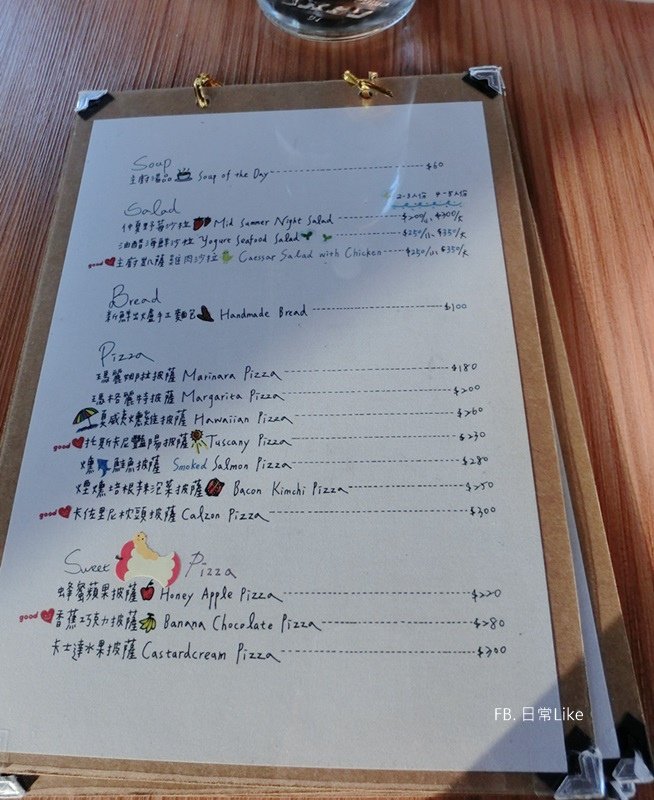 Soup
主廚湯品 Soup of the Day $60
Salad 2-3人份 4-5人份
仲夏野莓沙拉 Mid Summer Night Salad $200/小 $300/大
油醋海鮮沙拉 Yogurt Seafood Salad $250/小 $350/大
good 主廚凱薩雞肉沙拉 Caessar Salad with Chicken $250/小 $350/大
Bread
新鮮出爐手工麵包 Handmade Bread $100
Pizza
瑪麗娜拉披薩 Marinara Pizza $180
瑪格麗特披薩 Margarita Pizza $200
夏威夷燻雞披薩 Hawaiian Pizza $260
good 托斯卡尼豔陽披薩 Tuscany Pizza $230
燻鮭魚披薩 Smoked Salmon Pizza $280
煙燻培根辣泡菜披薩 Bacon Kimchi Pizza $250
good 卡佐里尼枕頭披薩 Calzon Pizza $300
Sweet Pizza
蜂蜜蘋果披薩 Honey Apple Pizza $220
good 香蕉巧克力披薩 Banana Chocolate Pizza $280
卡士達水果披薩 Castardcream Pizza $300
FB. 日常Like